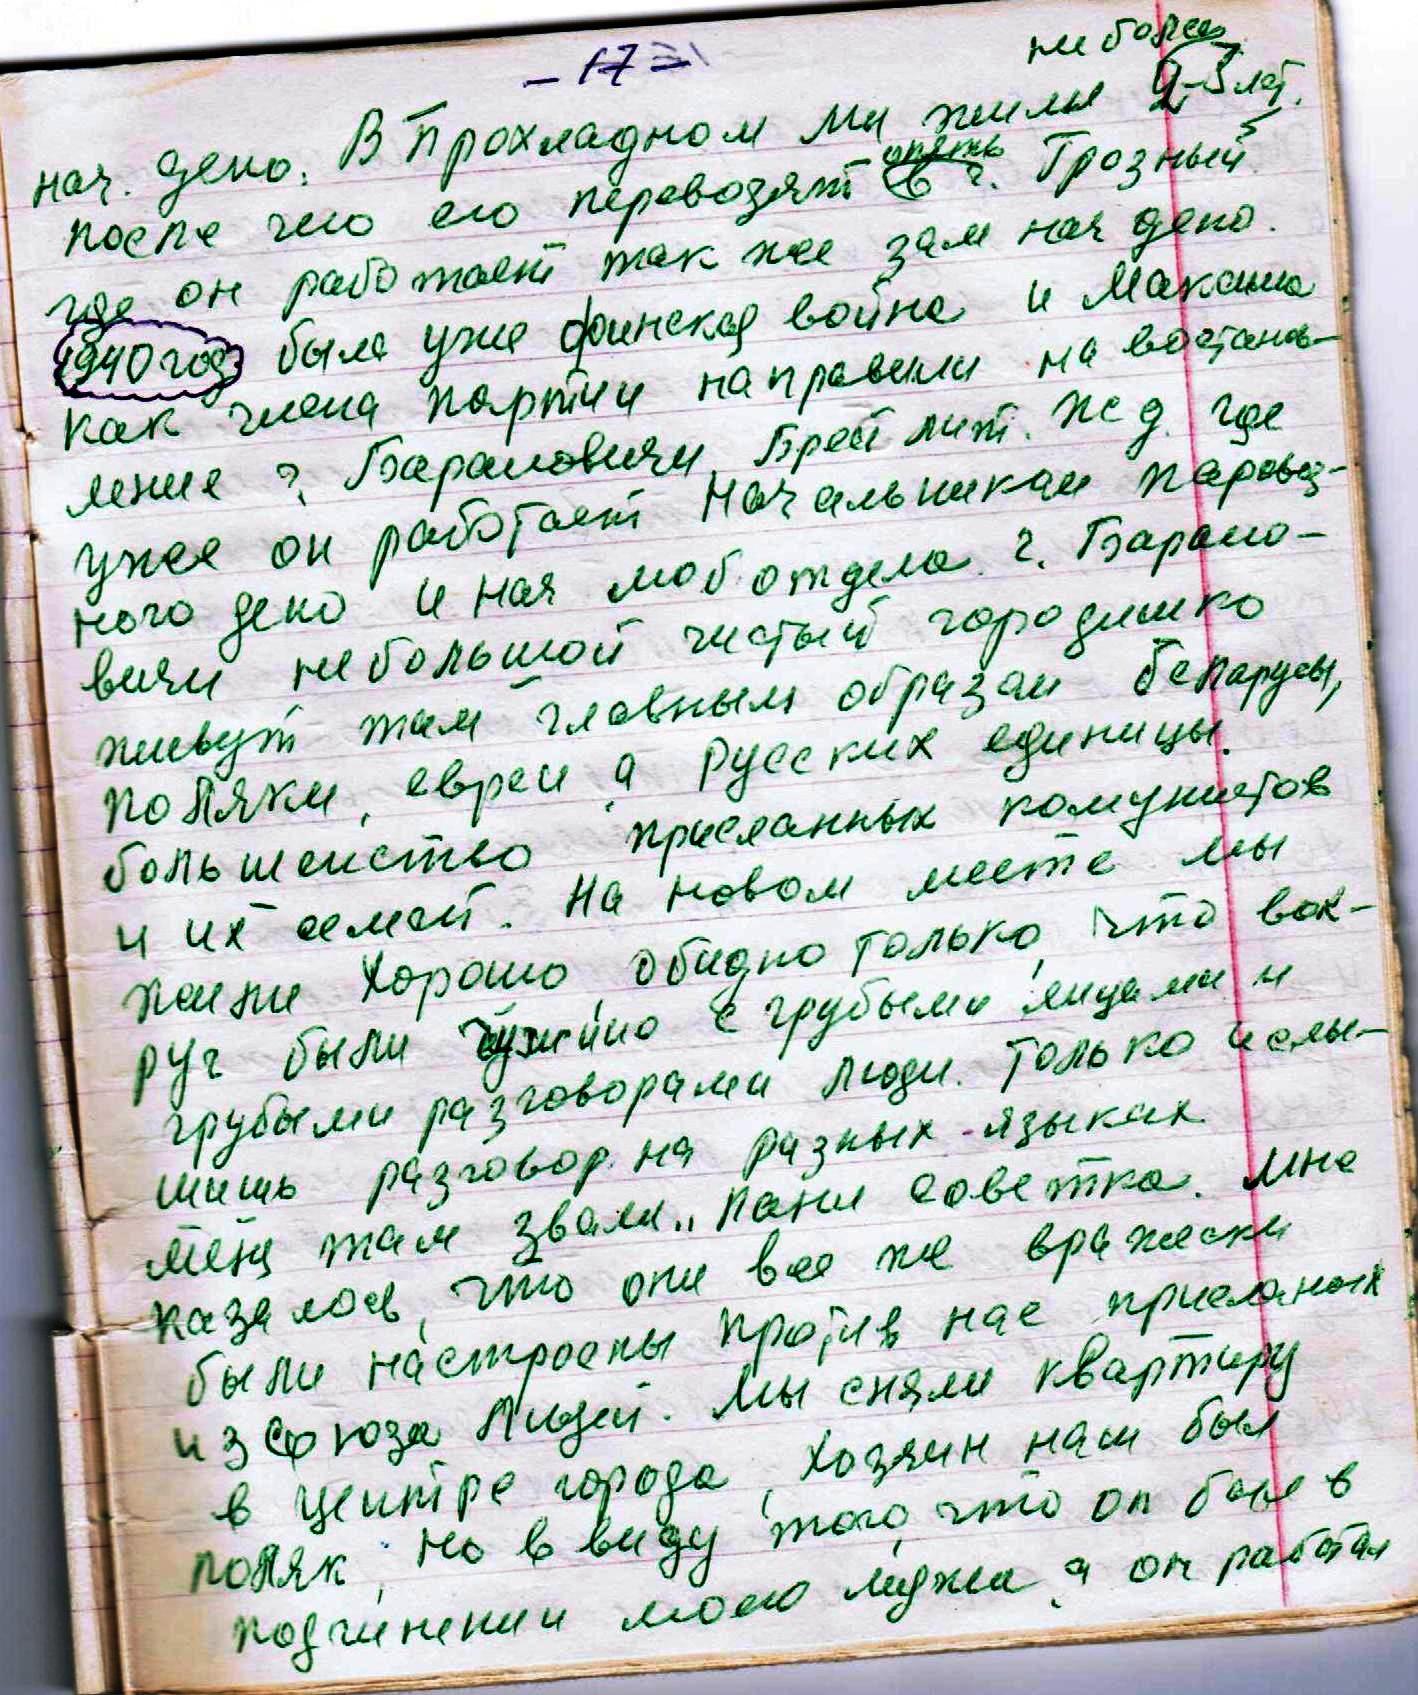 - 17 -
не более
нач. депо. В Прохладном мы жили 2-3 лет.
после чего его перевозят опять в г. Грозный
где он работает так же зам нач депо.
1940 год была уже финская война и Максима
как члена партии направили на востанов-
ление г. Барановичи, Брест лит. ж д. где
уже он работает начальником паровоз-
ного депо и нач моб отдела. г. Барано-
вичи небольшой чистый городишко
живут там главным образом беларусы,
поляки, евреи, а русских единицы.
большенство присланных комунистов
и их семей. На новом месте мы
жили хорошо, обидно только, что вок-
руг были с грубыми лицами и
грубыми разговорами люди. Только и слы-
шишь разговор на разных языках.
меня там звали „пани советка. Мне
казалось, что они все же вражески
были настроены против нас присланых
из союза людей. Мы сняли квартиру
в центре города, хозяин наш был
поляк, но в виду того, что он был в
подчинении моего мужа, а он работал